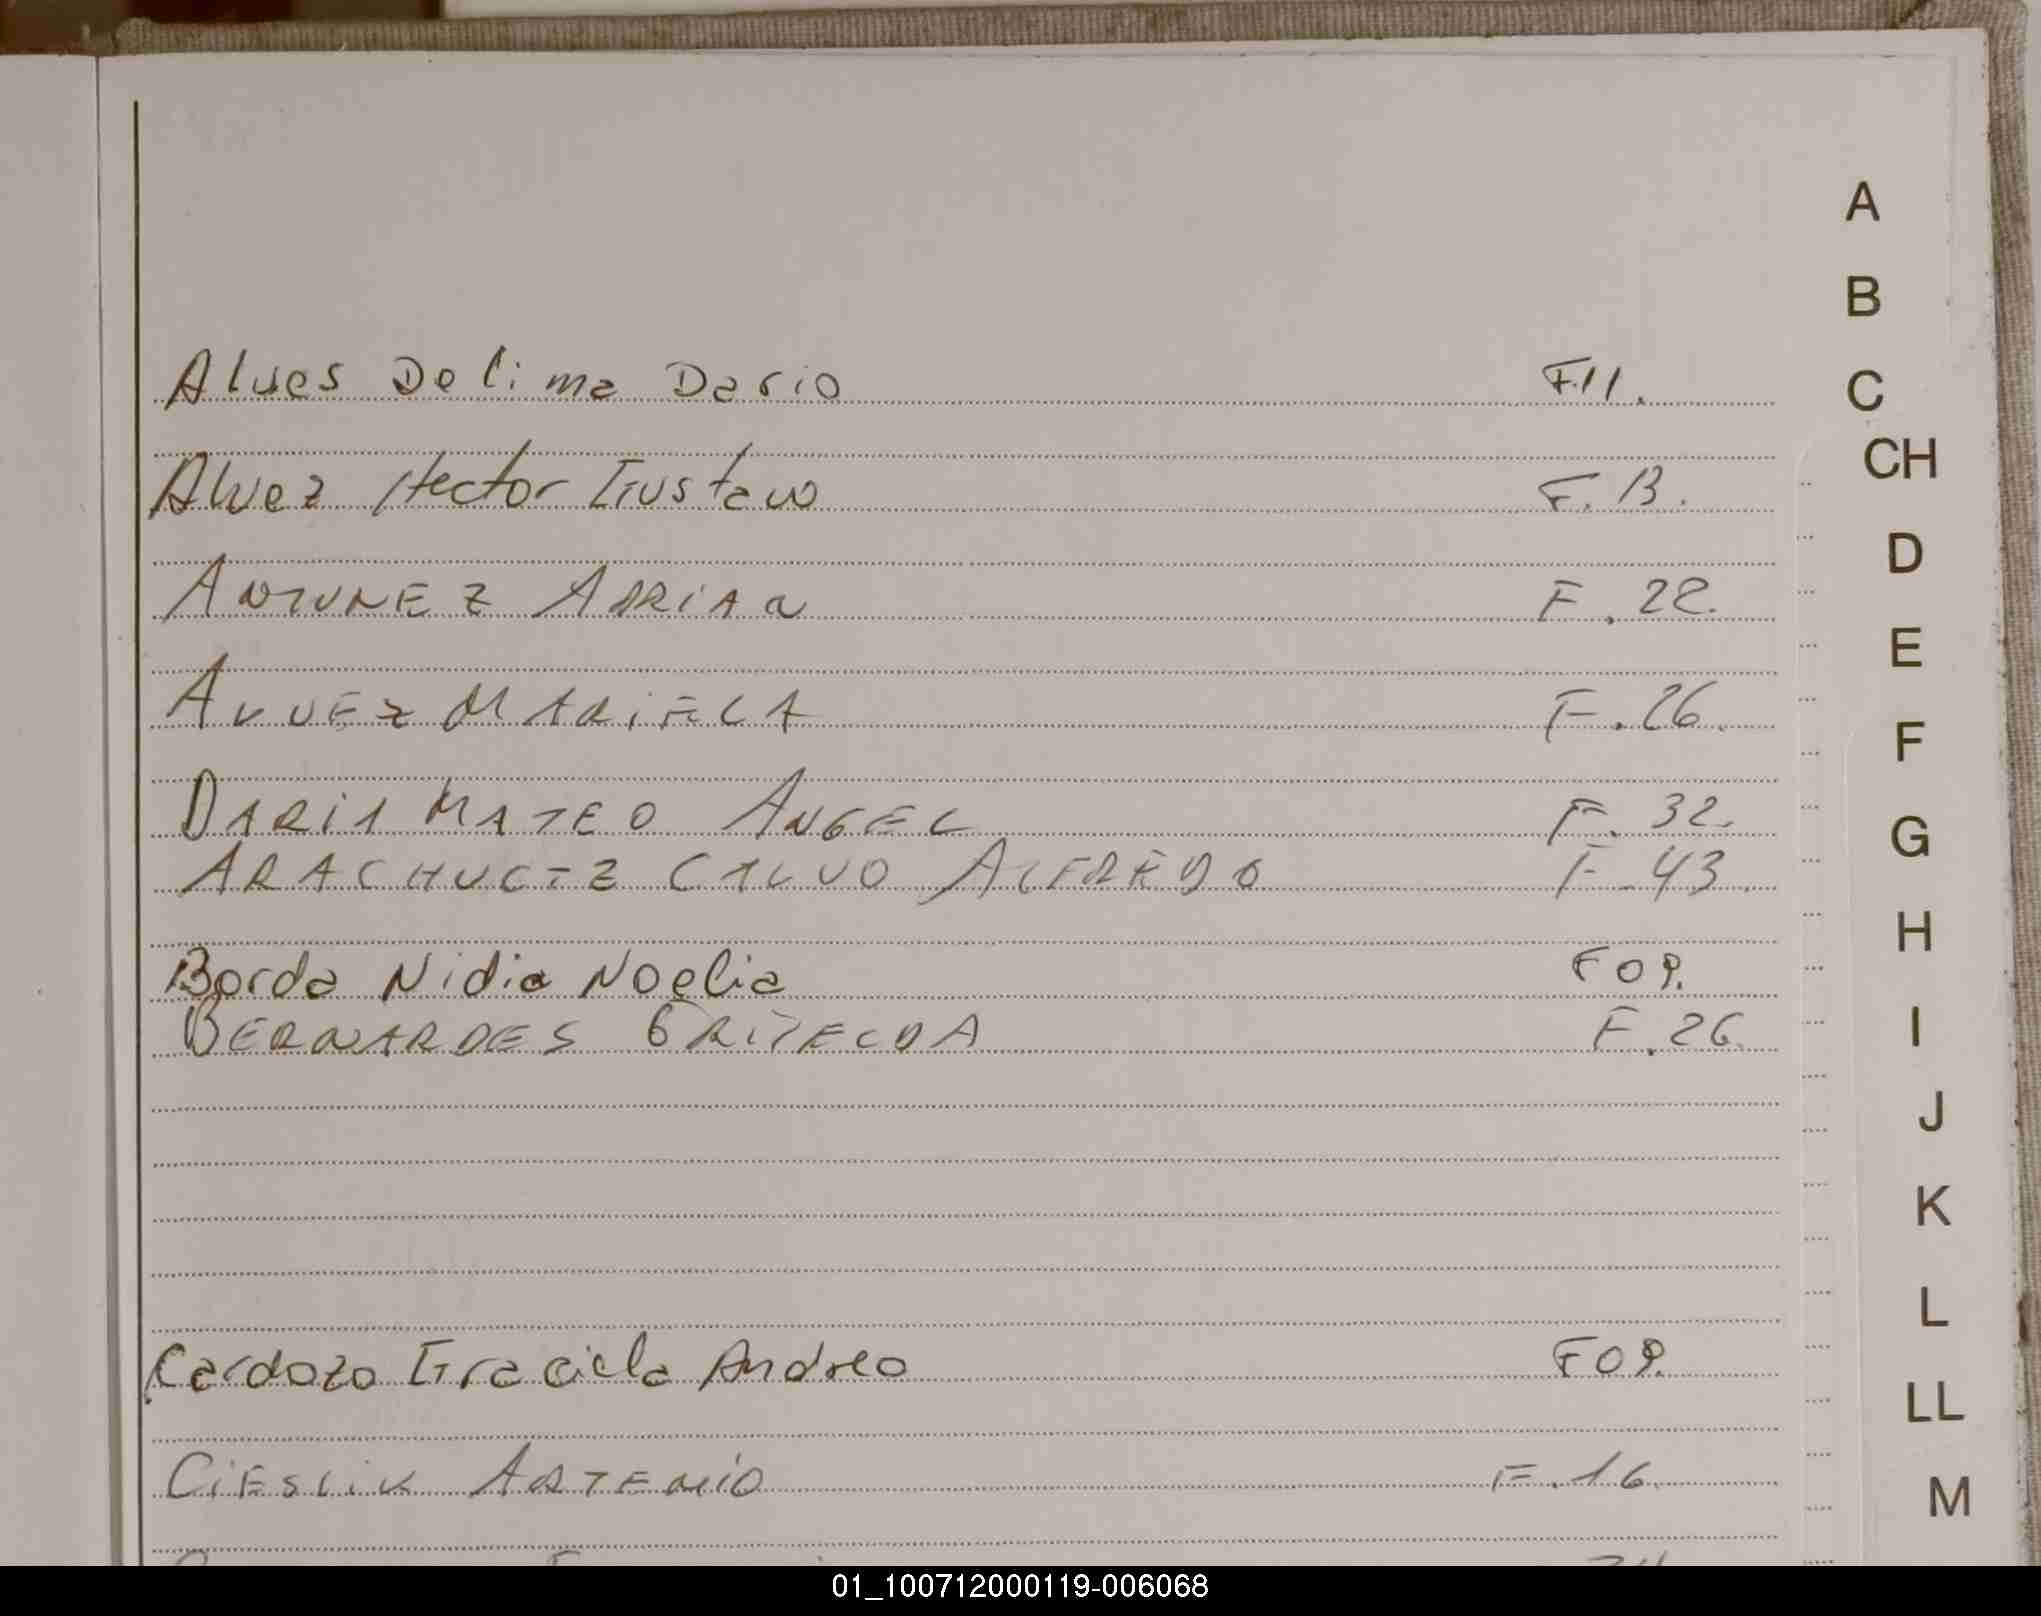 A
B
Alves De lima Dario F.11.
C
CH
Alvez Hector Gustavo F. 13.
D
ANTUNEZ ADRIAN F. 22.
E
ALVEZ MARIELA F. 26.
F
DARIA MATEO ANGEL F. 32.
G
CALVO ALFREDO F. 43
H
Borda Nidia Noelia F 09.
I
BERNARDES GRISELDA F. 26.
J
K
L
Cardozo Graciela Andrea F 09.
LL
CIESLIK ARTEMIO F. 16.
M
01_100712000119-006068